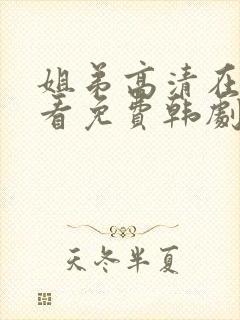 姐弟高清在
看免费韩剧
天冬半夏